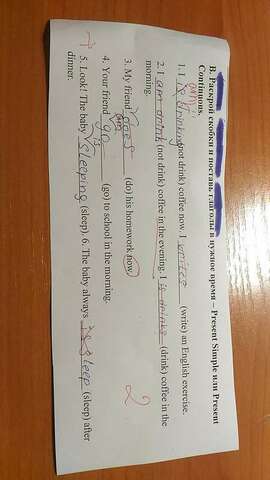 В. Раскрой скобки и поставь глаголы в нужное время – Present Simple или Present
Continuous.
(am)
1. I is drinking (not drink) coffee now. I writes (write) an English exercise.
2. I am drink (not drink) coffee in the evening. I is drinks (drink) coffee in the
morning.
3. My friend does (do) his homework now.
4. Your friend go (go) to school in the morning.
is
5. Look! The baby sleeping (sleep). 6. The baby always is sleep (sleep) after
dinner.
2